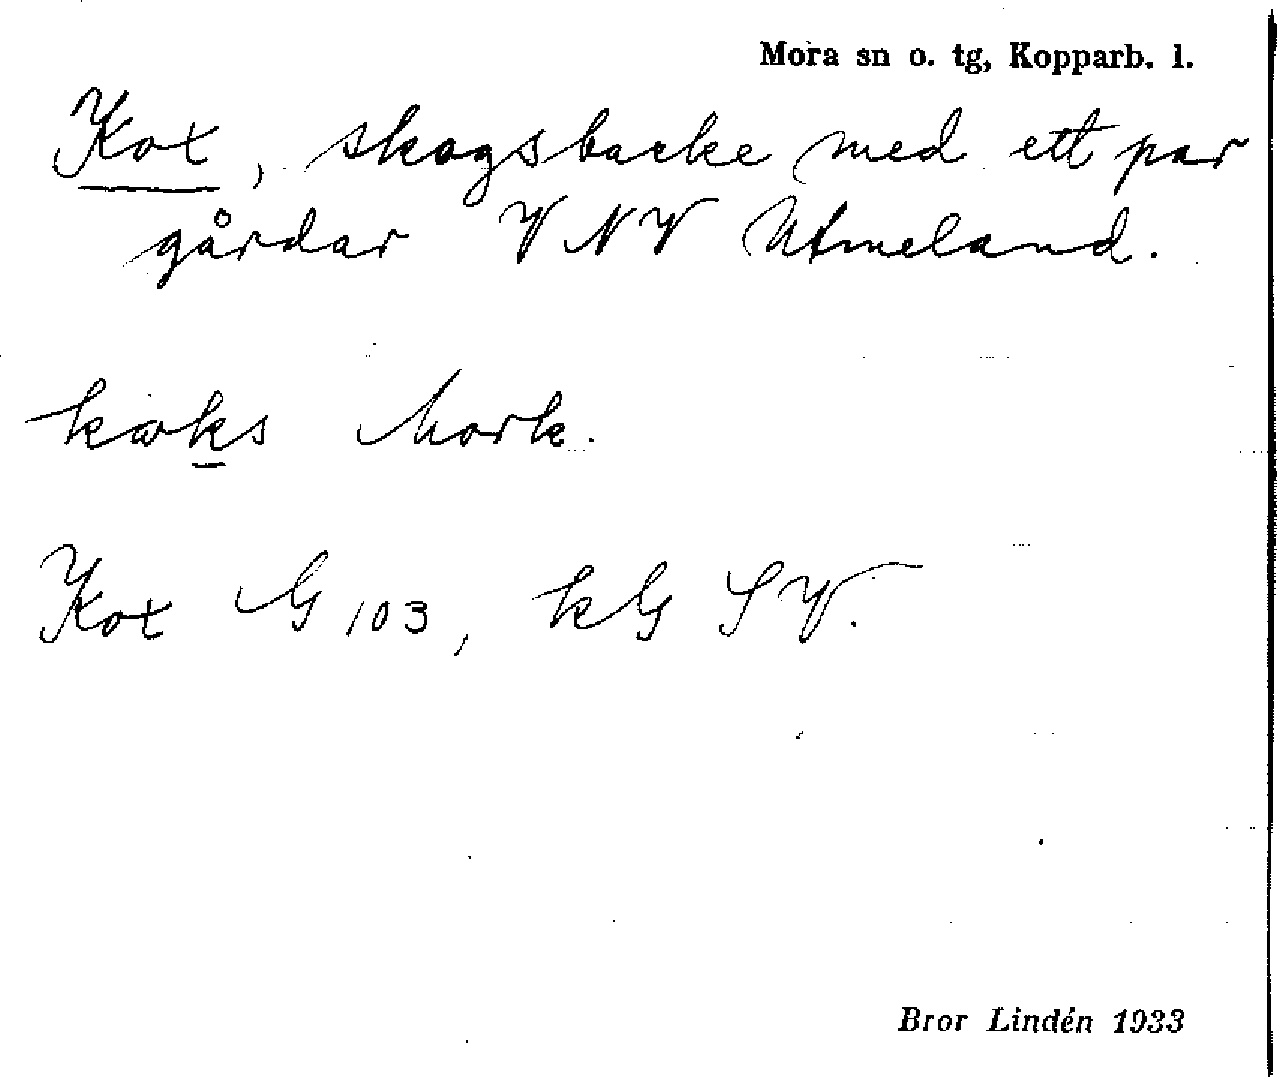 Mora sn o. tg, Kopparb. l.
Kox, skogsbacke med ett par
gårdar VNV Utmeland.
Mork.
Kox G 103, kG SV.
Bror Lindén 1933